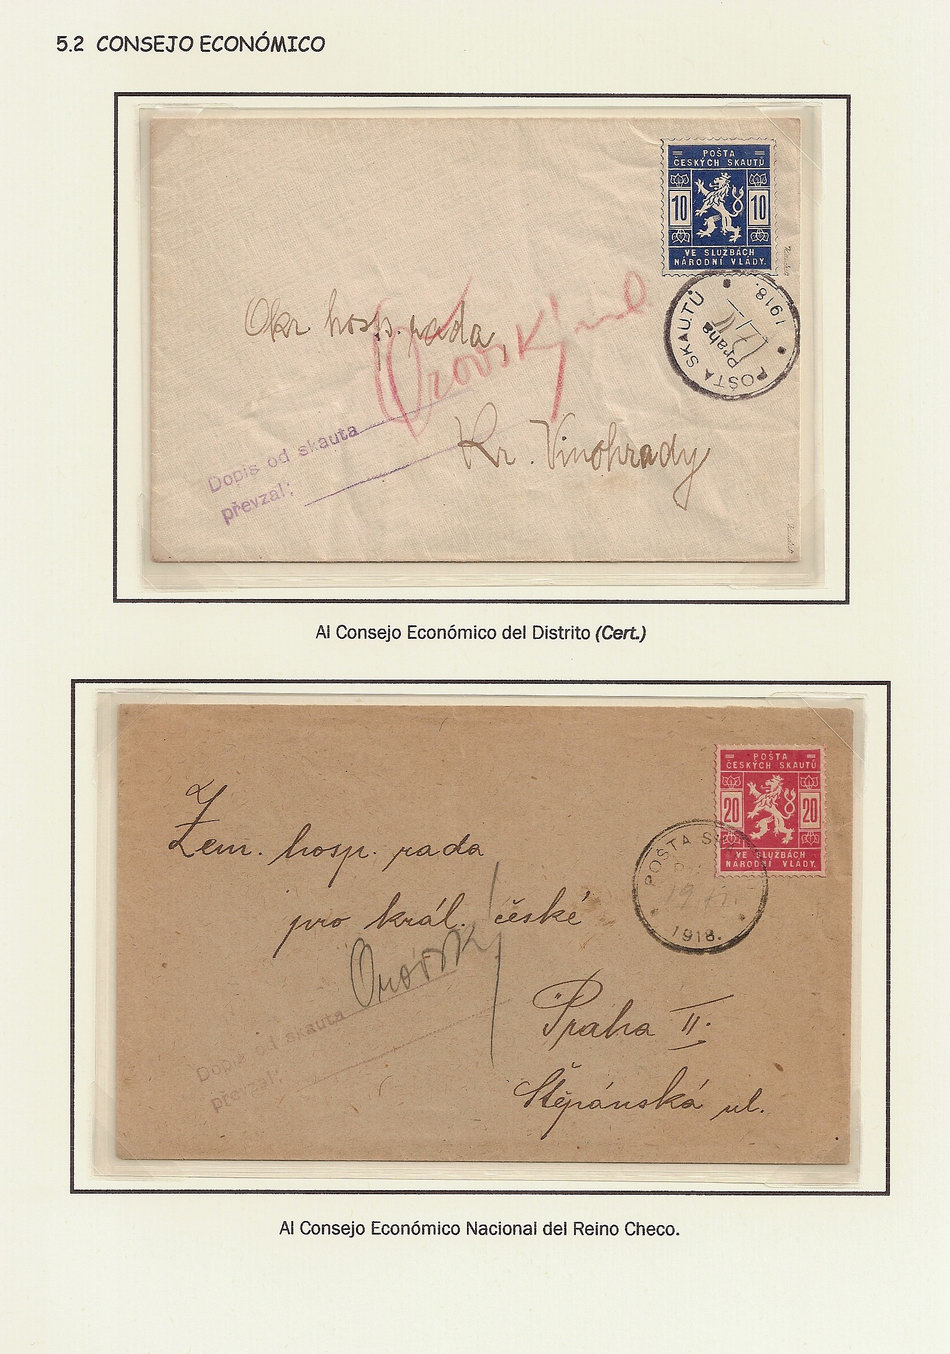 5.2 CONSEJO ECONÓMICO
POŠTA
ČESKÝCH SKAUTŮ
10 10
VE SLUŽBÁCH
NÁRODNÍ VLÁDY.
POŠTA SKAUTŮ
Praha
1918.
Okr. hosp. rada
Kr. Vinohrady
Dopis od skauta
převzal:
Al Consejo Económico del Distrito (Cert.)
POŠTA
ČESKÝCH SKAUTŮ
20 20
VE SLUŽBÁCH
NÁRODNÍ VLÁDY.
POŠTA
1918.
Zem. hosp. rada
pro král. české
Praha II.
Štěpánská ul.
Dopis od skauta
převzal:
Al Consejo Económico Nacional del Reino Checo.